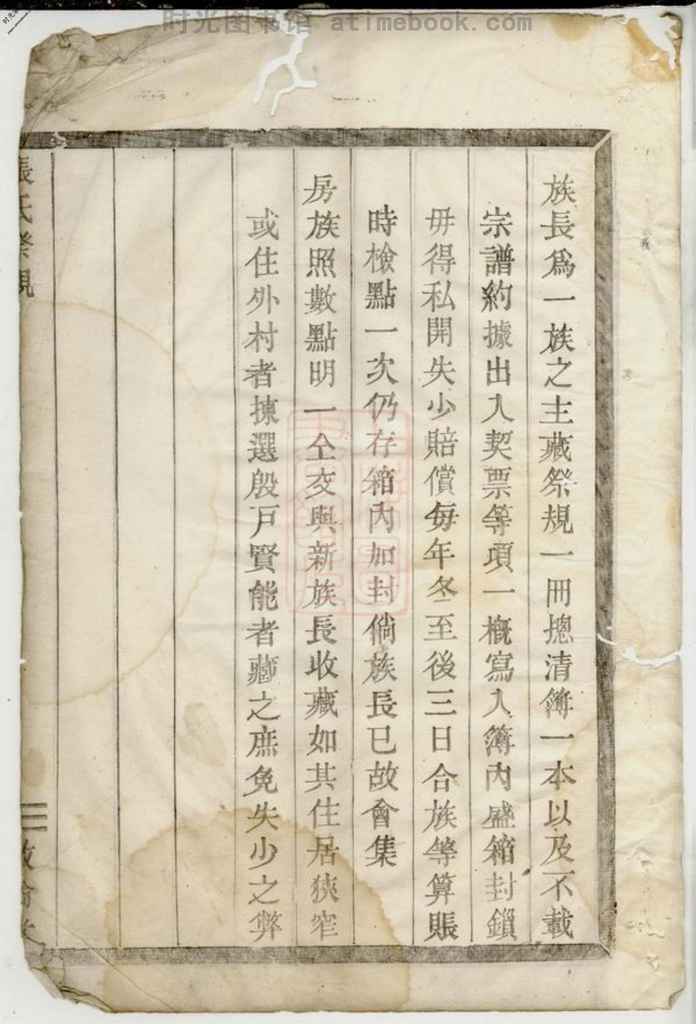 时光图书馆 atimebook.com
族長爲一族之主藏祭規一冊摠清簿一本以及不載
宗譜約據出入契票等項一槪寫入簿內盛箱封鎖
毋得私開失少賠償每年冬至後三日合族等算賬
時檢點一次仍存箱內加封倘族長已故會集
房族照數點明一仝交與新族長收藏如其住居狹窄
或住外村者揀選殷戶賢能者藏之庶免失少之弊
張氏祭規
三